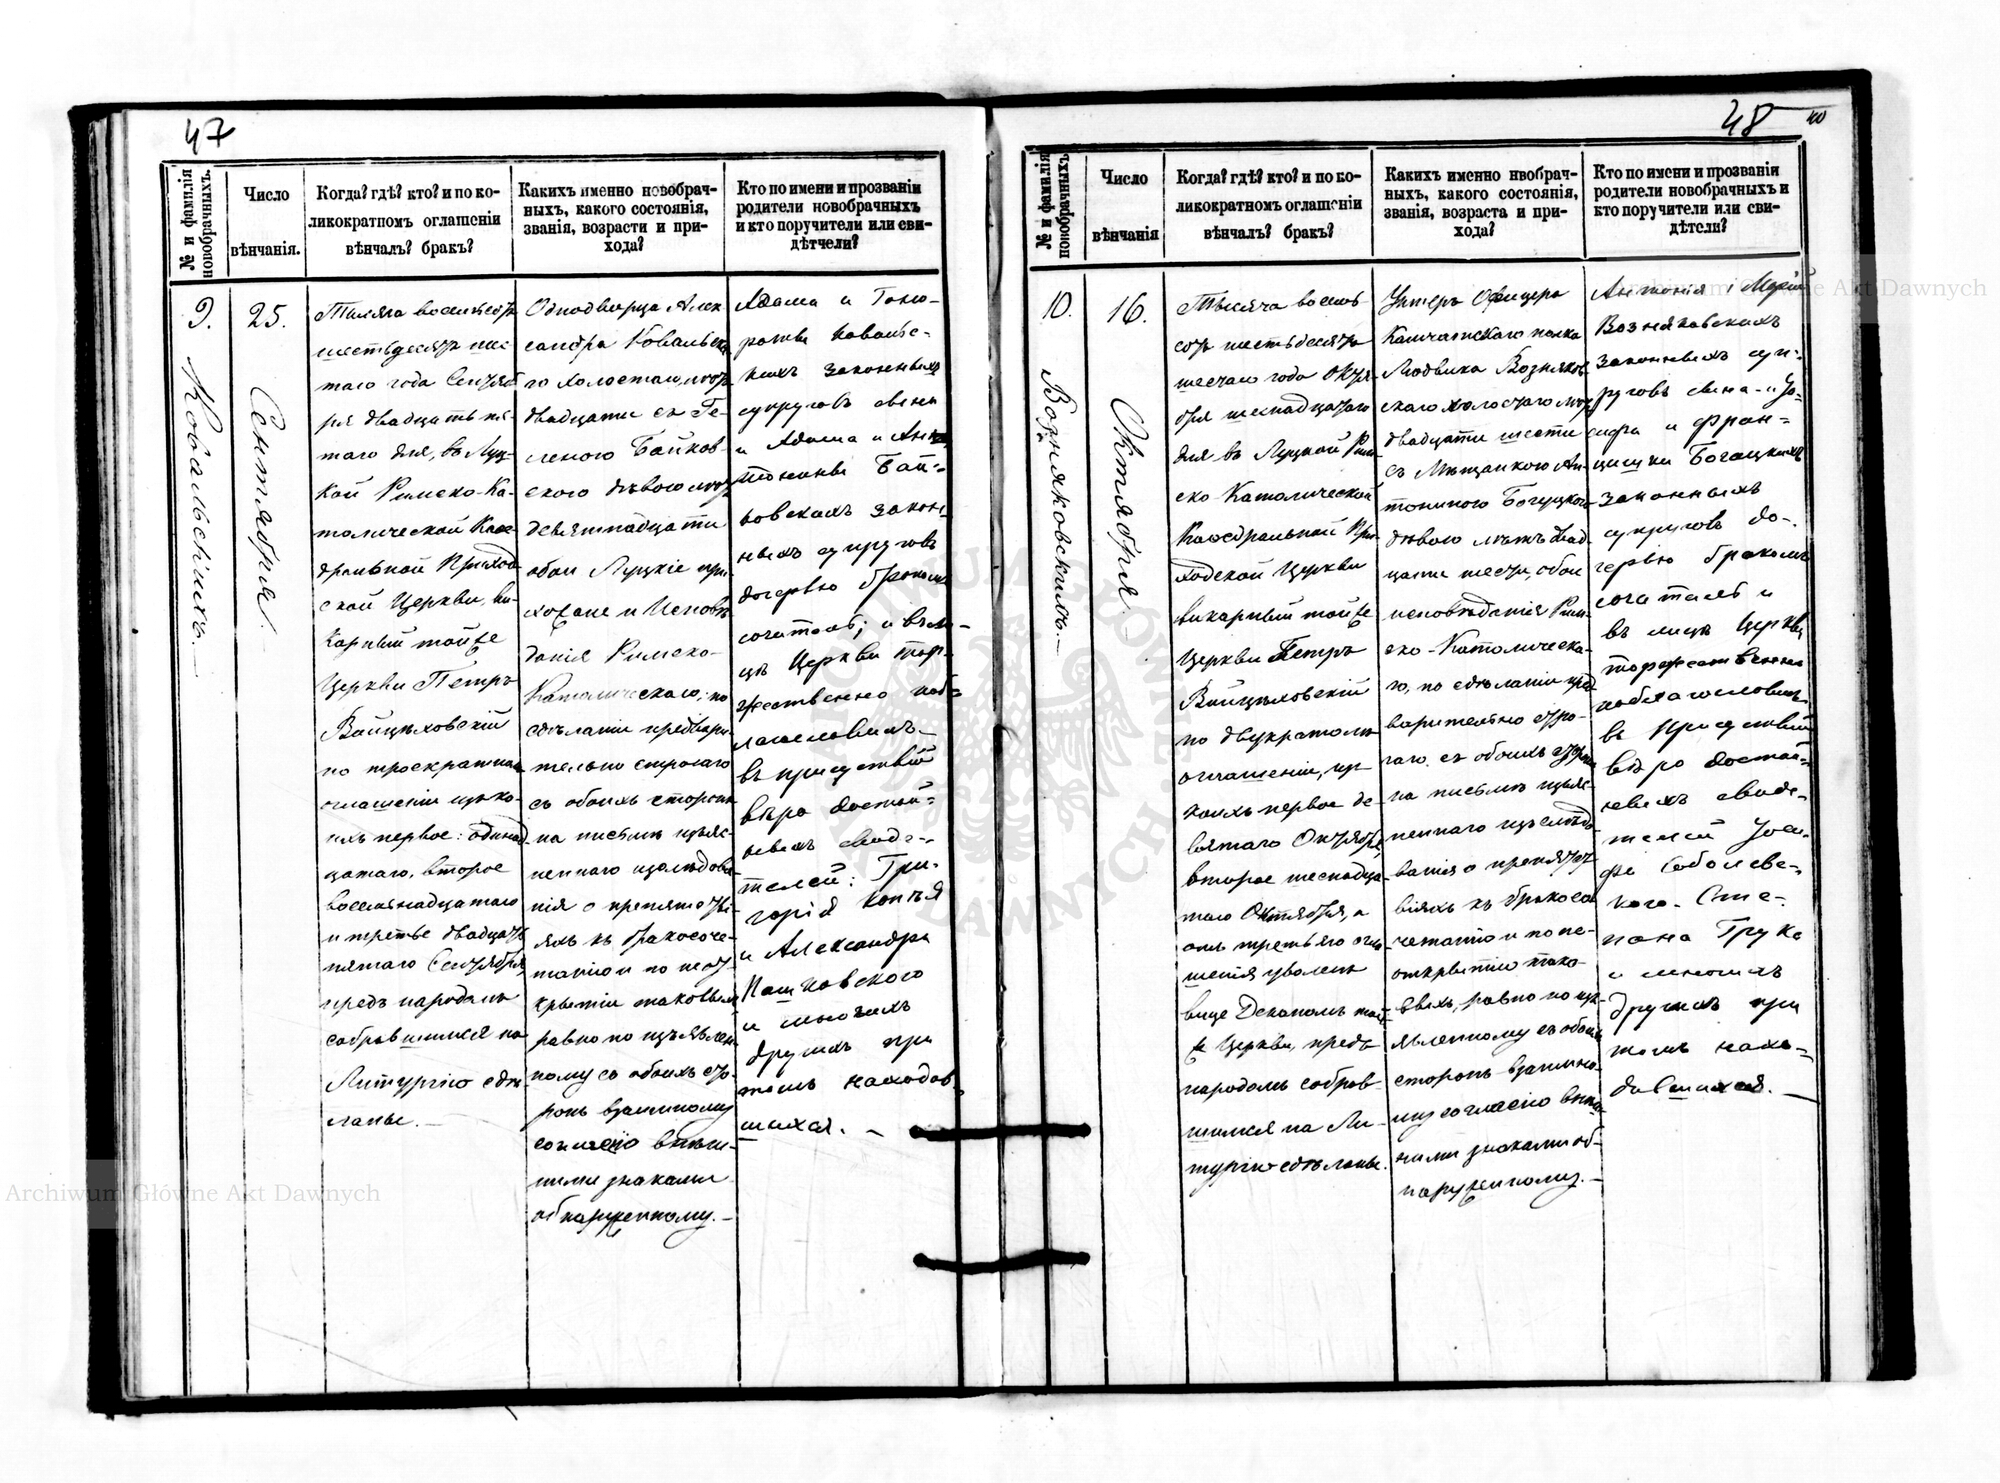 47
№ и фамилія новобрачныхъ.
Число вѣнчанія.
Когда? гдѣ? кто? и по ко-
ликократномъ оглашеніи
вѣнчалъ? бракъ?
Какихъ именно новобрач-
ныхъ, какого состоянія,
званія, возрасти и при-
хода?
Кто по имени и прозваніи
родители новобрачныхъ
и кто поручители или сви-
дѣтчели?
9.
Ковальскихъ.
25.
Сентября.
Тысяча восемьсотъ
шестьдесятъ шес-
таго года Сентяб
ря двадцать пя-
таго дня, въ Луц-
кой Римско-Ка-
толической Каѳе
дральной Приход
ской Церкви, ви-
карный тойже
Церкви Петръ
Войцѣховскій
по троекратномъ
оглашеніи изъ ко-
ихъ первое: одинад
цатаго, второе
восемнадцатаго
и третье двадцать
пятаго Сентября,
предъ народомъ
собравшимся на
Литургію сдѣ-
ланы.
Однодворца Алек
сандра Ковальска
го холостаго, лѣтъ
двадцати съ Ге-
леною Байков-
скою дѣвою лѣтъ
девятнадцати
обои Луцкіе при
хожане и Исповѣ
данія Римско-
Католическаго; по
сдѣланіи предвари
тельно строгаго
съ обоихъ сторонъ
на письмѣ изъяс-
неннаго изслѣдова
нія о препятстві
яхъ къ бракосоче-
танію и по неот-
крытіи таковыхъ
равно по изъявлен
ному съ обоихъ сто-
ронъ взаимному
согласію внѣш-
ними знаками
обнаруженному.
Адама и
Коваль-
скихъ законныхъ
супруговъ сына
и Адама и Ан
Бай-
ковскихъ закон-
ныхъ супруговъ
дочерью бракомъ
сочеталъ; и въ ли-
цѣ Церкви тор-
жественно побла-
гословилъ
въ присутствіи
вѣро достой-
ныхъ свидѣ-
телей: Гри-
горія Копья
и Александра
Пашковскаго
и многихъ
другихъ при
томъ находив-
шихся.
48
40
№ и фамилія новобрачныхъ.
Число вѣнчанія
Когда? гдѣ? кто? и по ко-
ликократномъ оглашеніи
вѣнчалъ? бракъ?
Какихъ именно нвобрач-
ныхъ, какого состоянія,
званія, возраста и при-
хода?
Кто по имени и прозваніи
родители новобрачныхъ и
кто поручители или сви-
дѣтели?
10.
Возняковскихъ.
16.
Октября
Тысяча восемь
сотъ шестьдесятъ
шестаго года Октя-
бря шестнадцатаго
дня въ Луцкой Рим
ско-Католической
Каѳедральной При
ходской Церкви
викарный тойже
Церкви Петръ
Войцѣховскій
по двукратомъ
оглашеніи, изъ
коихъ первое де-
вятаго Октября,
второе шестнадца-
таго Октября, а
отъ третьяго огла
шенія уволенъ
вице Деканомъ той
же Церкви, предъ
народомъ собрав-
шимся на Ли-
тургію сдѣланы.
Унтеръ Офицера
Камчатскаго полка
Людвика Возняков
скаго холостаго лѣтъ
двадцати шести
съ Мѣщанкою Ан
тониною Богуцкою
дѣвою лѣтъ двад
цати шести, обои
исповѣданія Рим-
ско-Католическа-
го, по сдѣланіи пред
варительно стро-
гаго съ обоихъ сторонъ
на письмѣ изъяс-
неннаго изслѣдо
ванія о препятст
віяхъ къ бракосо
четанію и по не-
открытіи тако-
выхъ, равно по изъ-
явленному съ обоихъ
сторонъ взаимно-
му согласію внѣш
ними знаками об-
наруженному.
Антонія и Маріи
Возняковскихъ
законныхъ суп-
руговъ сына и Іо-
сифа и Фран-
цишки Богацкихъ
законныхъ
супруговъ до-
черью бракомъ
сочеталъ и
въ лицѣ Церкви
торжественно
поблагословилъ
въ присутствіи
вѣро достой-
ныхъ свидѣ-
телей Іоси-
фа Соболевс-
каго Сте-
пана Грука
и многихъ
другихъ при
томъ нахо-
дившихся.
Archiwum Główne Akt Dawnych
Archiwum Główne Akt Dawnych
ARCHIWUM GŁÓWNE AKT DAWNYCH